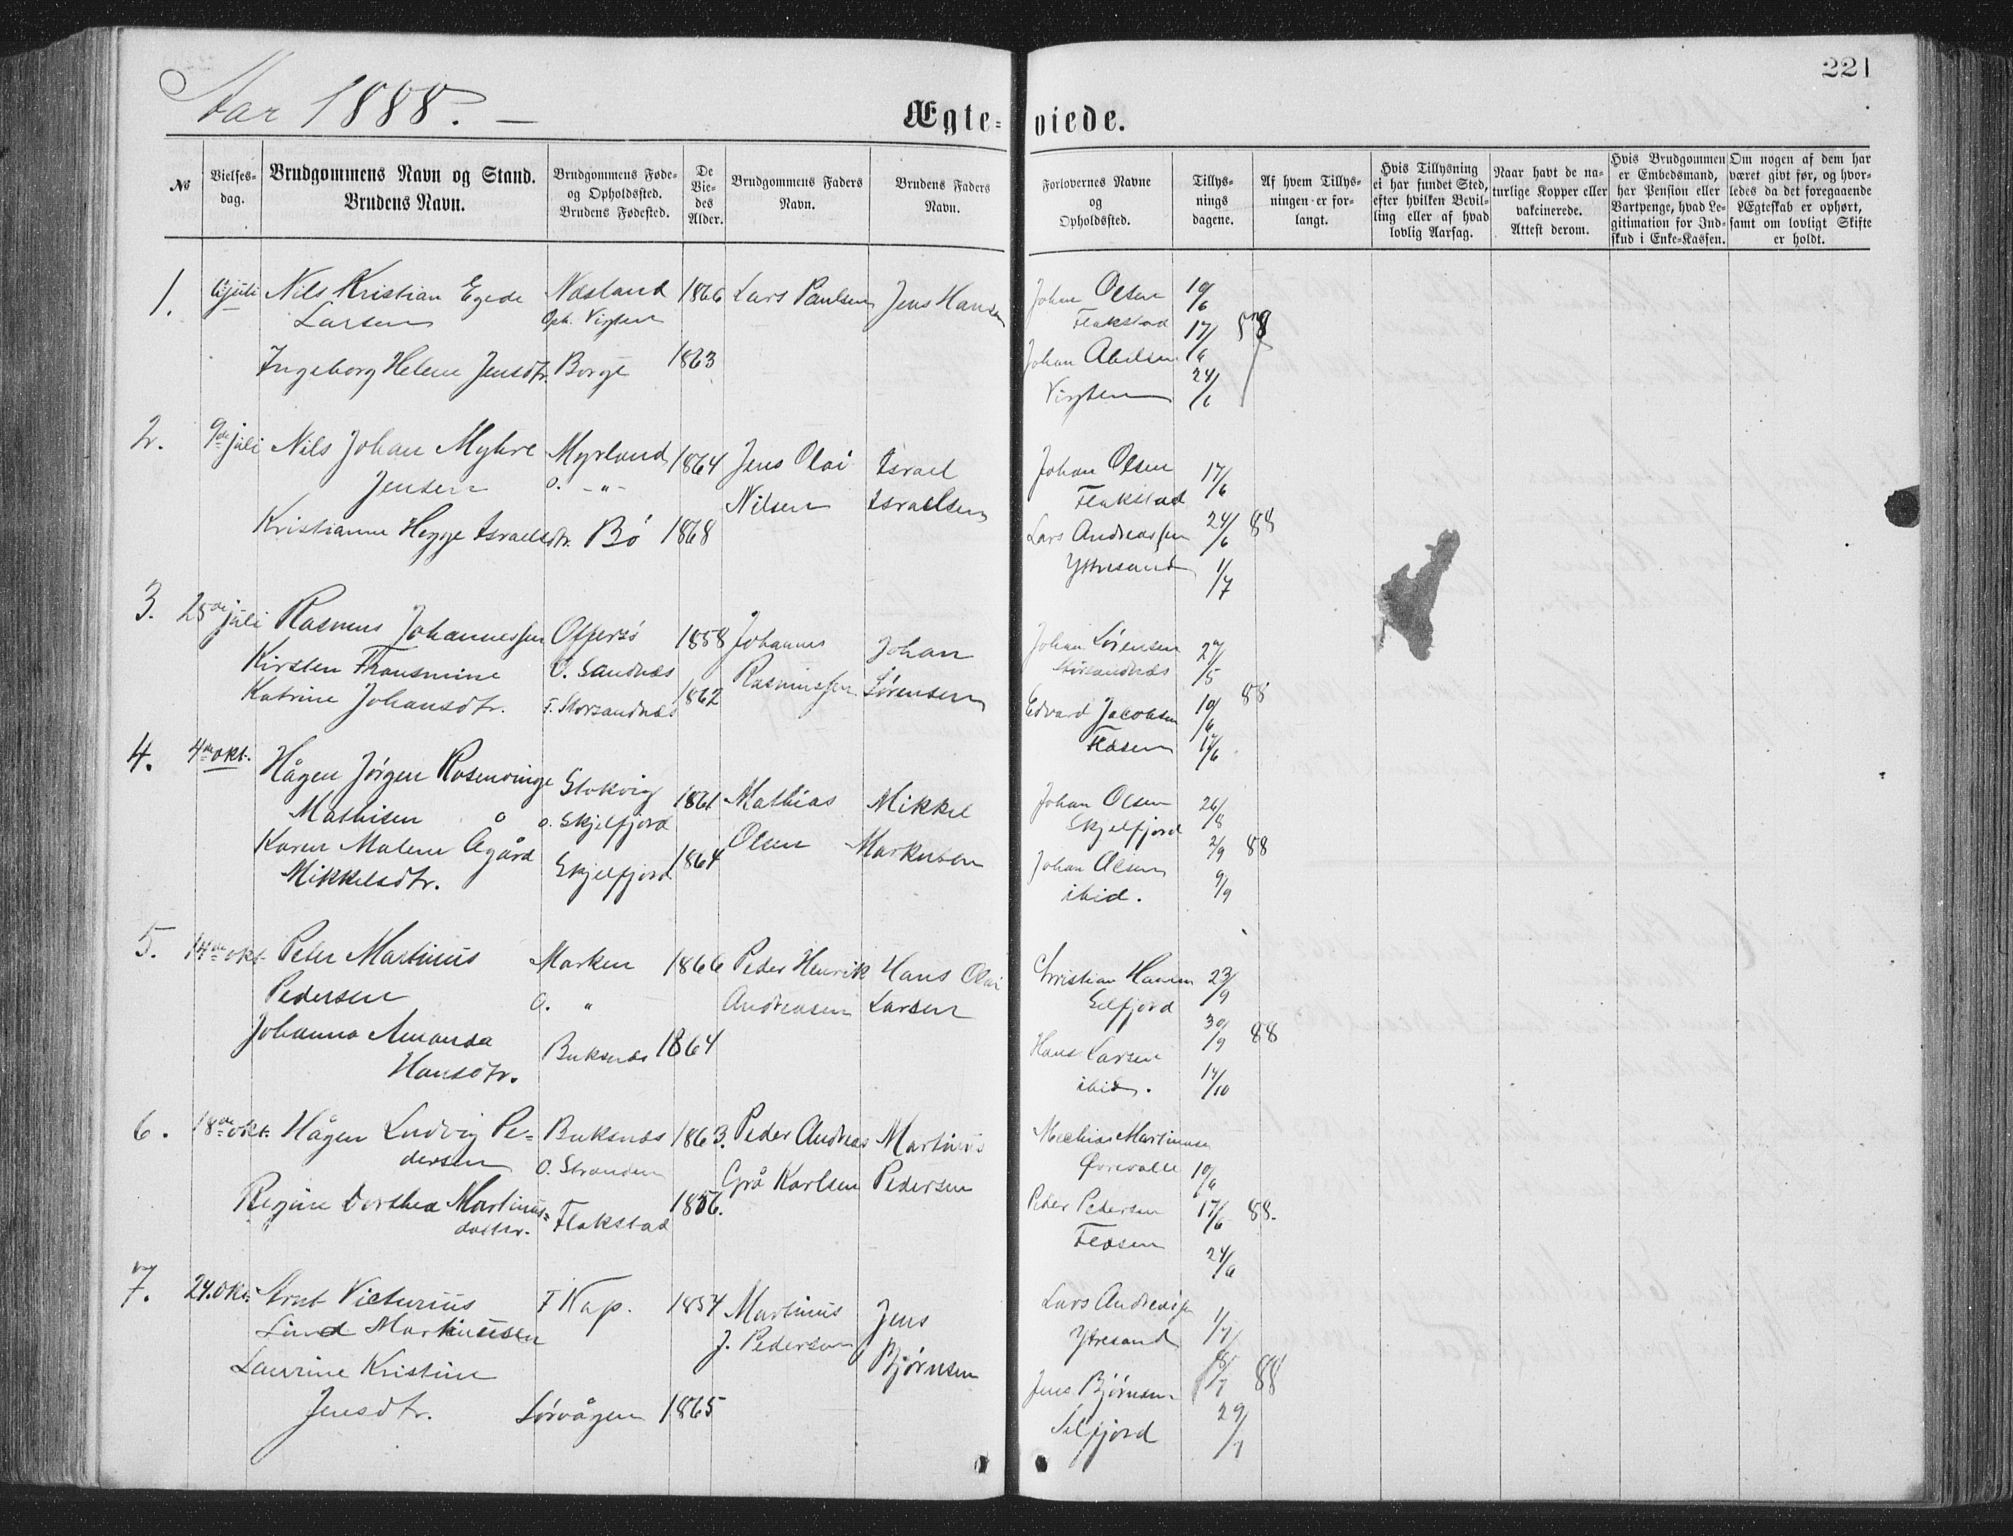 221
Aar 1888. —
Ægte-viede.
No
Vielses-
dag.
Brudgommens Navn og Stand.
Brudens Navn.
Brudgommens Føde-
og Opholdssted.
Brudens Fødested.
De
Vie-
des
Alder.
Brudgommens Faders
Navn.
Brudens Faders
Navn.
Forlovernes Navne
og
Opholdssted.
Tillys-
nings
dagene.
Af hvem Tillys-
ningen er for-
langt.
Hvis Tillysning
ei har fundet Sted,
efter hvilken Bevil-
ling eller af hvad
lovlig Aarsag.
Naar havt de na-
turlige Kopper eller
vakcinerede.
Attest derom.
Hvis Brudgommen
er Embedsmand,
har Pension eller
Vartpenge, hvad Le-
gitimation for Ind-
skud i Enke-Kassen.
Om nogen af dem har
været givt før, og hvor-
ledes da det foregaaende
Ægteskab er ophørt,
samt om lovligt Skifte
er holdt.
1. juli Nils Kristian Egede Næsland 1866 Lars Paulsen Jens Hansen Johan Olsen 10/6
Larsen Oph. Vigten Flakstad 17/6
Ingeborg Helene Jensdtr. Borge 1863 Johan Abelsen
Vigten 24/6
2. 9de juli Nils Johan Myhre Myrland 1864 Jens Olai Israel Johan Olsen 17/6
Jensen o. -"- Nilsen Israelsen Flakstad
Kristianne Hegge Israelsdtr. Bö 1868 Lars Andreassen 24/6 88
Yttresand 1/7
3. 25de juli Rasmus Johannessen Offersö 1858 Johannes Johan Johan Sörensen 27/5
Kirsten Fransmine O. Sandnæs Rasmussen Sörensen Storsandnæs
Katrine Johansdtr. F. Storsandnæs 1862 Edvard Jacobsen 10/6 88
17/6
4. 4de okt. Hågen Jörgen Rosenvinge Stokvig 1861 Mathias Mikkel Johan Olsen 26/8
Mathisen o. Skjelfjord Olsen Markusen Skjelfjord
Karen Malene Ågård Skjelfjord 1864 Johan Olsen 2/9 88
Mikkelsdtr. ibid. 9/9
5. 14de okt. Peter Martinus Marken 1866 Peder Henrik Hans Olai Christian Hansen 23/9
Pedersen O. " Andreasen Larsen Selfjord
Johanna Amanda Buksnæs 1864 Hans Larsen 30/9 88
Hansdtr. ibid. 14/10
6. 18de okt. Hågen Ludvig Pe- Buksnæs 1863. Peder Andreas Martinus Martinusen
dersen O. Stranden Grå Karlsen Pedersen 10/6
Regine Dorthea Martinus- Flakstad 1856. Peder Pedersen 17/6 88.
datter. 24/6
7. 24. okt. Arnt Victorius F Kap. 1854 Martinus Jens Lars Andreassen 1/7
Lind Martinussen J. Pederson Björnsen Ytresand
Laurine Kristine Jens Björnsen 88
Jensdtr. Sörvågen 1865 Selfjord 29/7